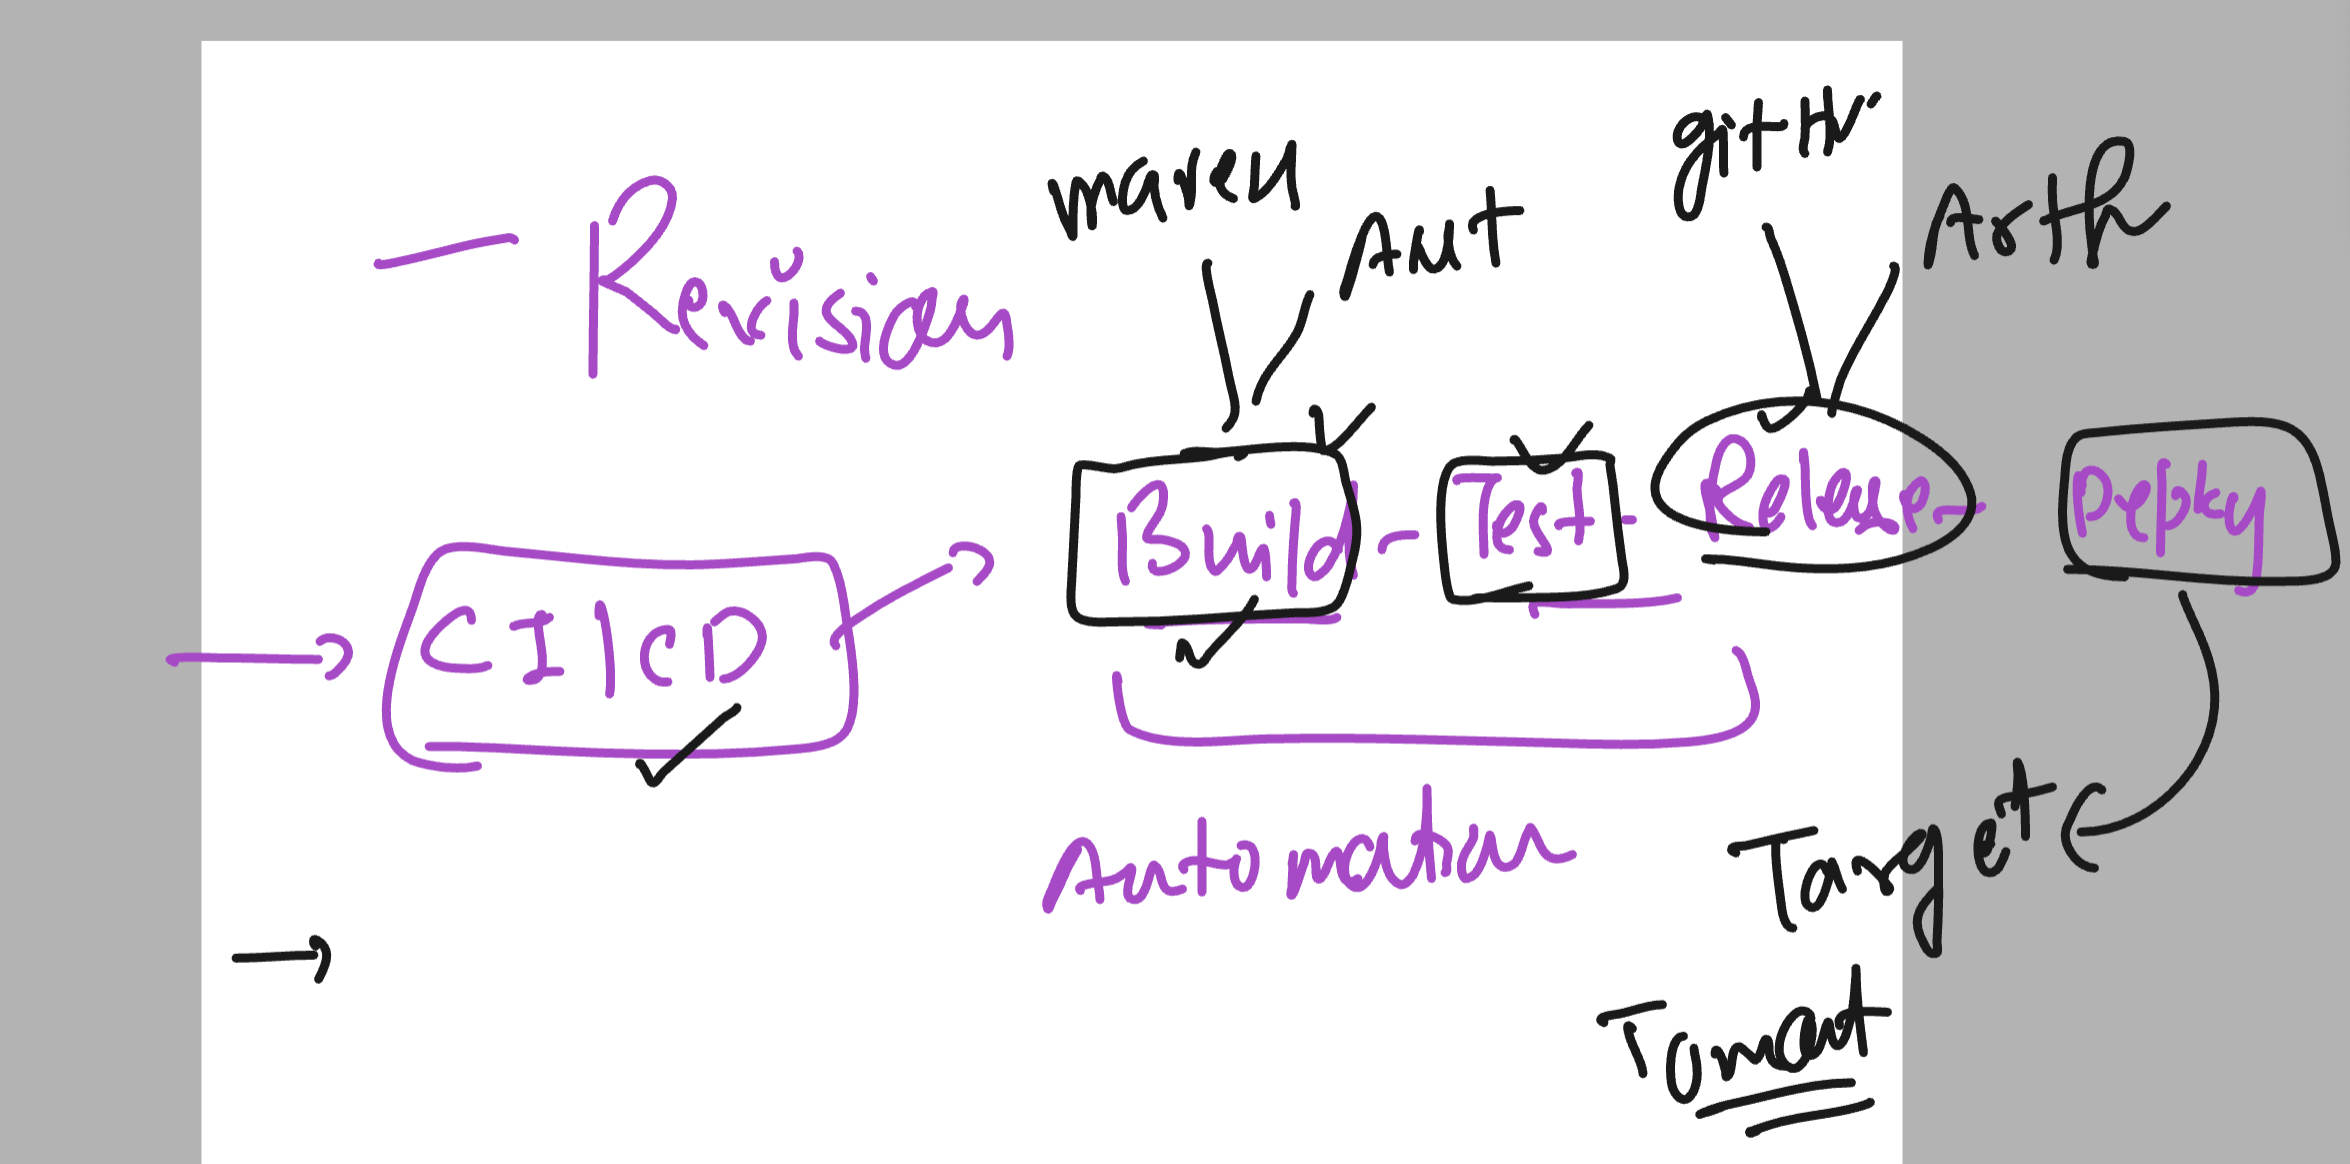 Revision
maven
Ant
gitHu
Build - Test - Release - Deploy
CI|CD
Automation
Target
Tomcat